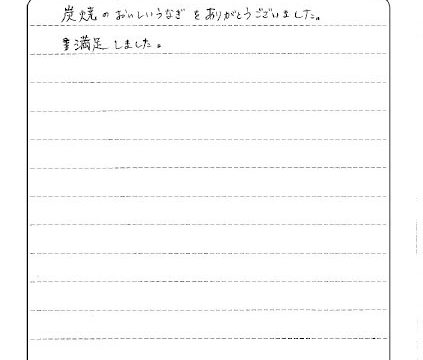 炭焼のおいしいうなぎをありがとうございました。
満足しました。